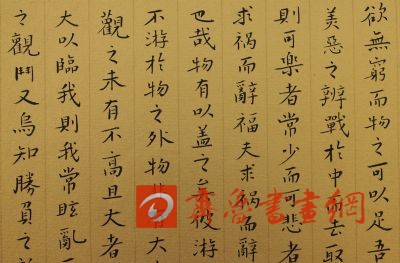 欲無窮而物之可以足吾
美惡之辨戰於中而去取
則可樂者常少而可悲者
求禍而辭福夫求禍而辭
也哉物有以蓋之矣彼游
不游於物之外物非有大
觀之未有不高且大者
大以臨我則我常眩亂
之觀鬥又烏知勝負之
齊魯書畫網